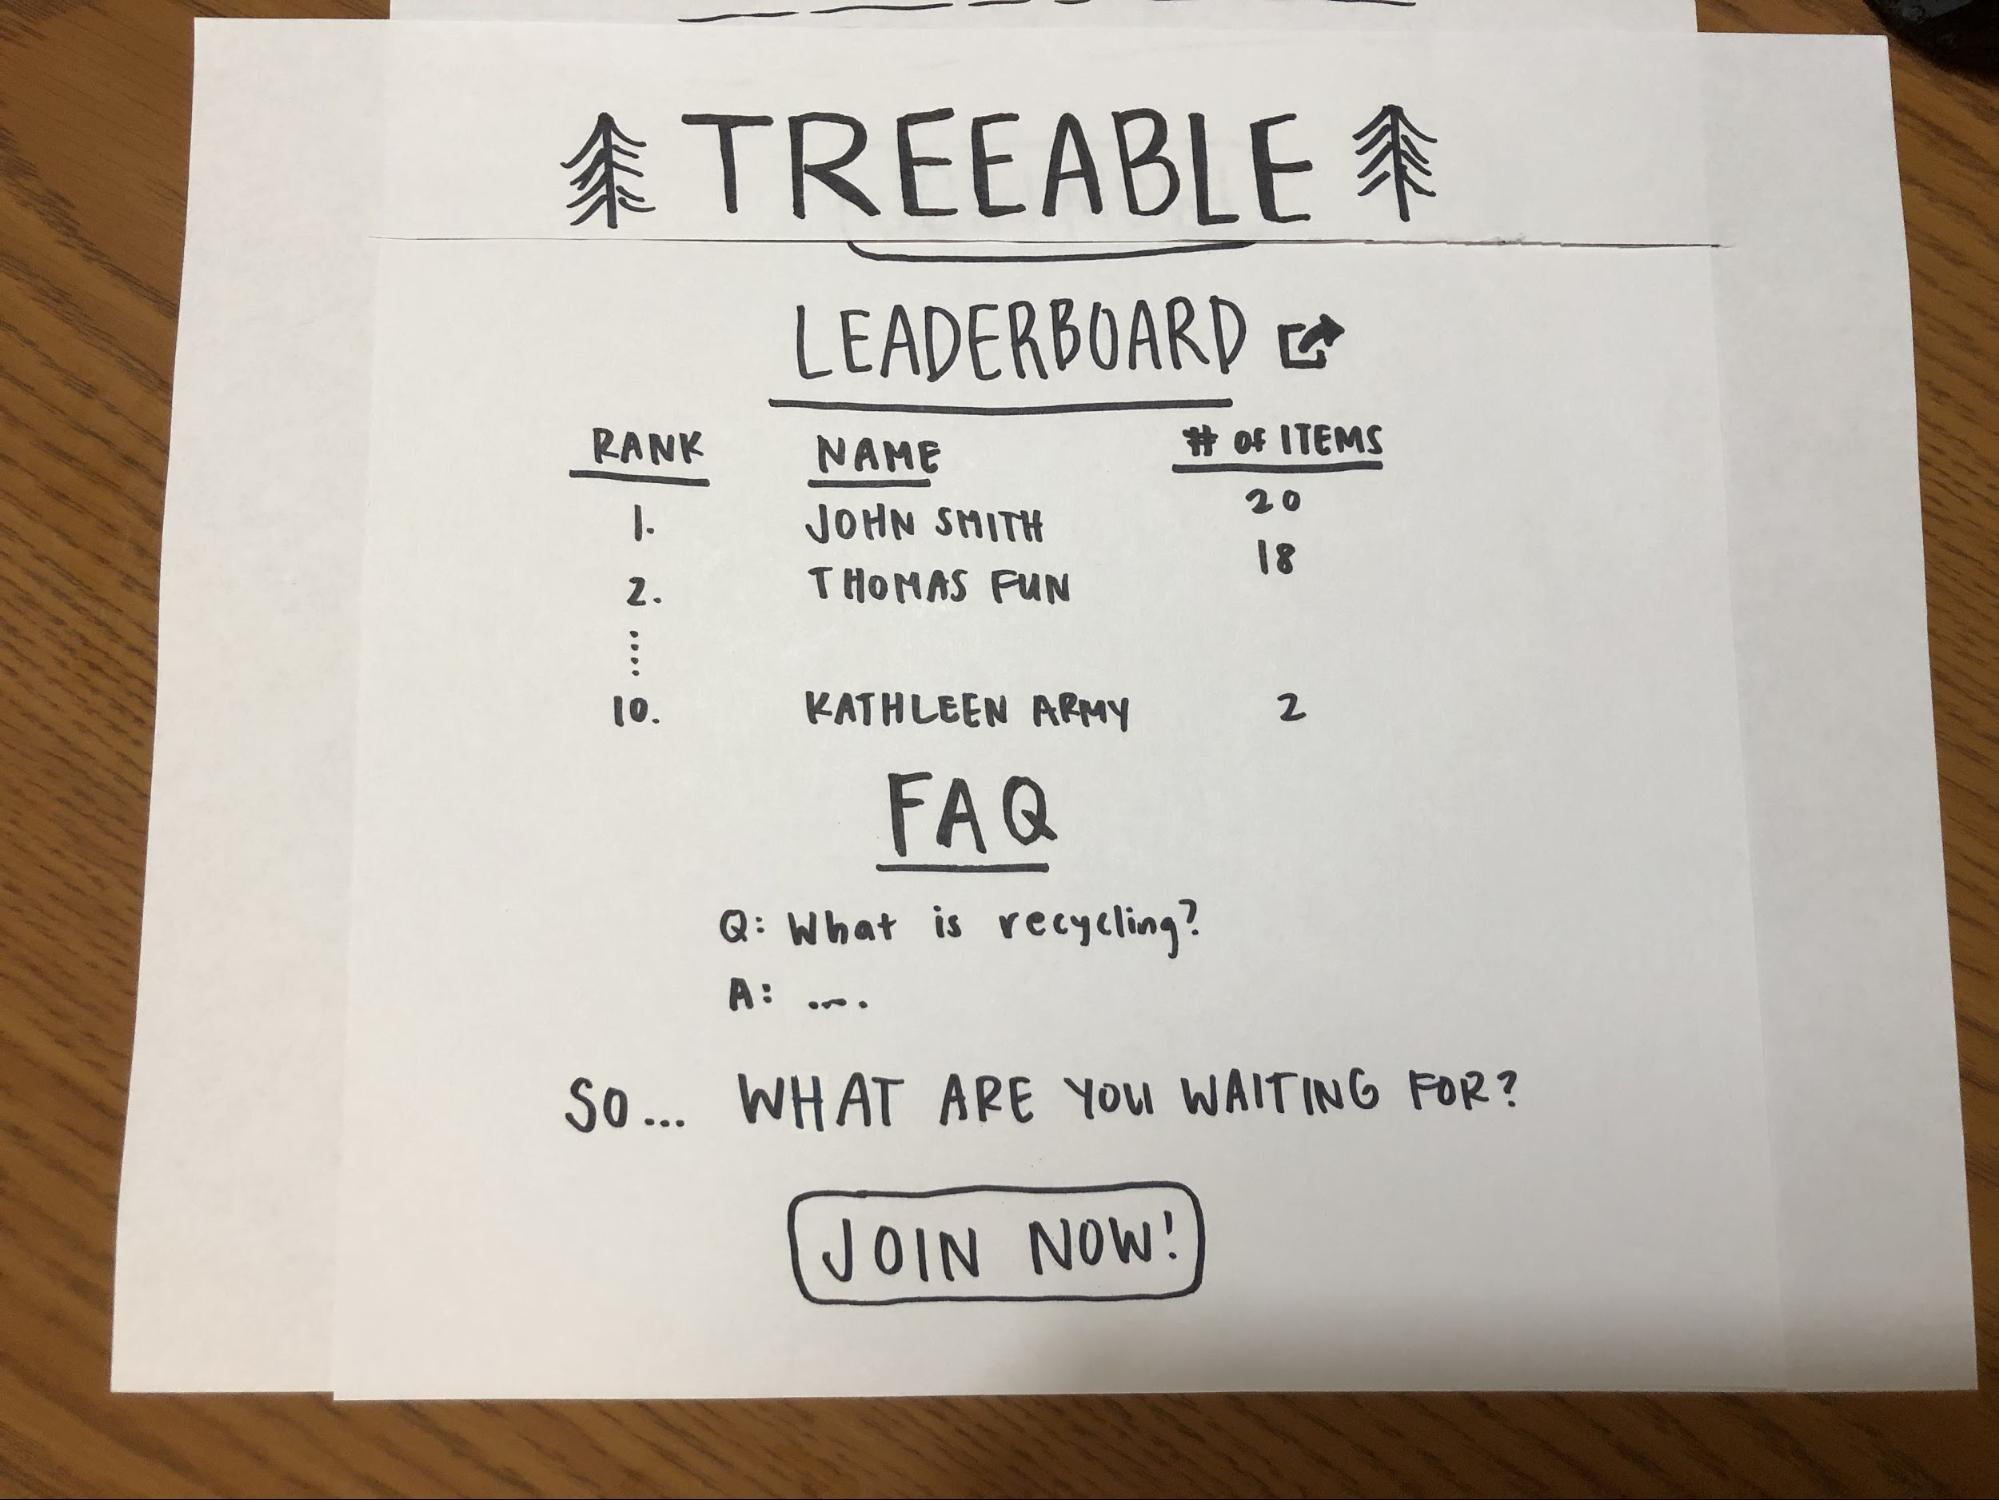 TREEABLE
LEADERBOARD
RANK NAME # of ITEMS
1. JOHN SMITH 20
2. THOMAS FUN 18
10. KATHLEEN ARMY 2
FAQ
Q: What is recycling?
A: ....
SO... WHAT ARE YOU WAITING FOR?
JOIN NOW!